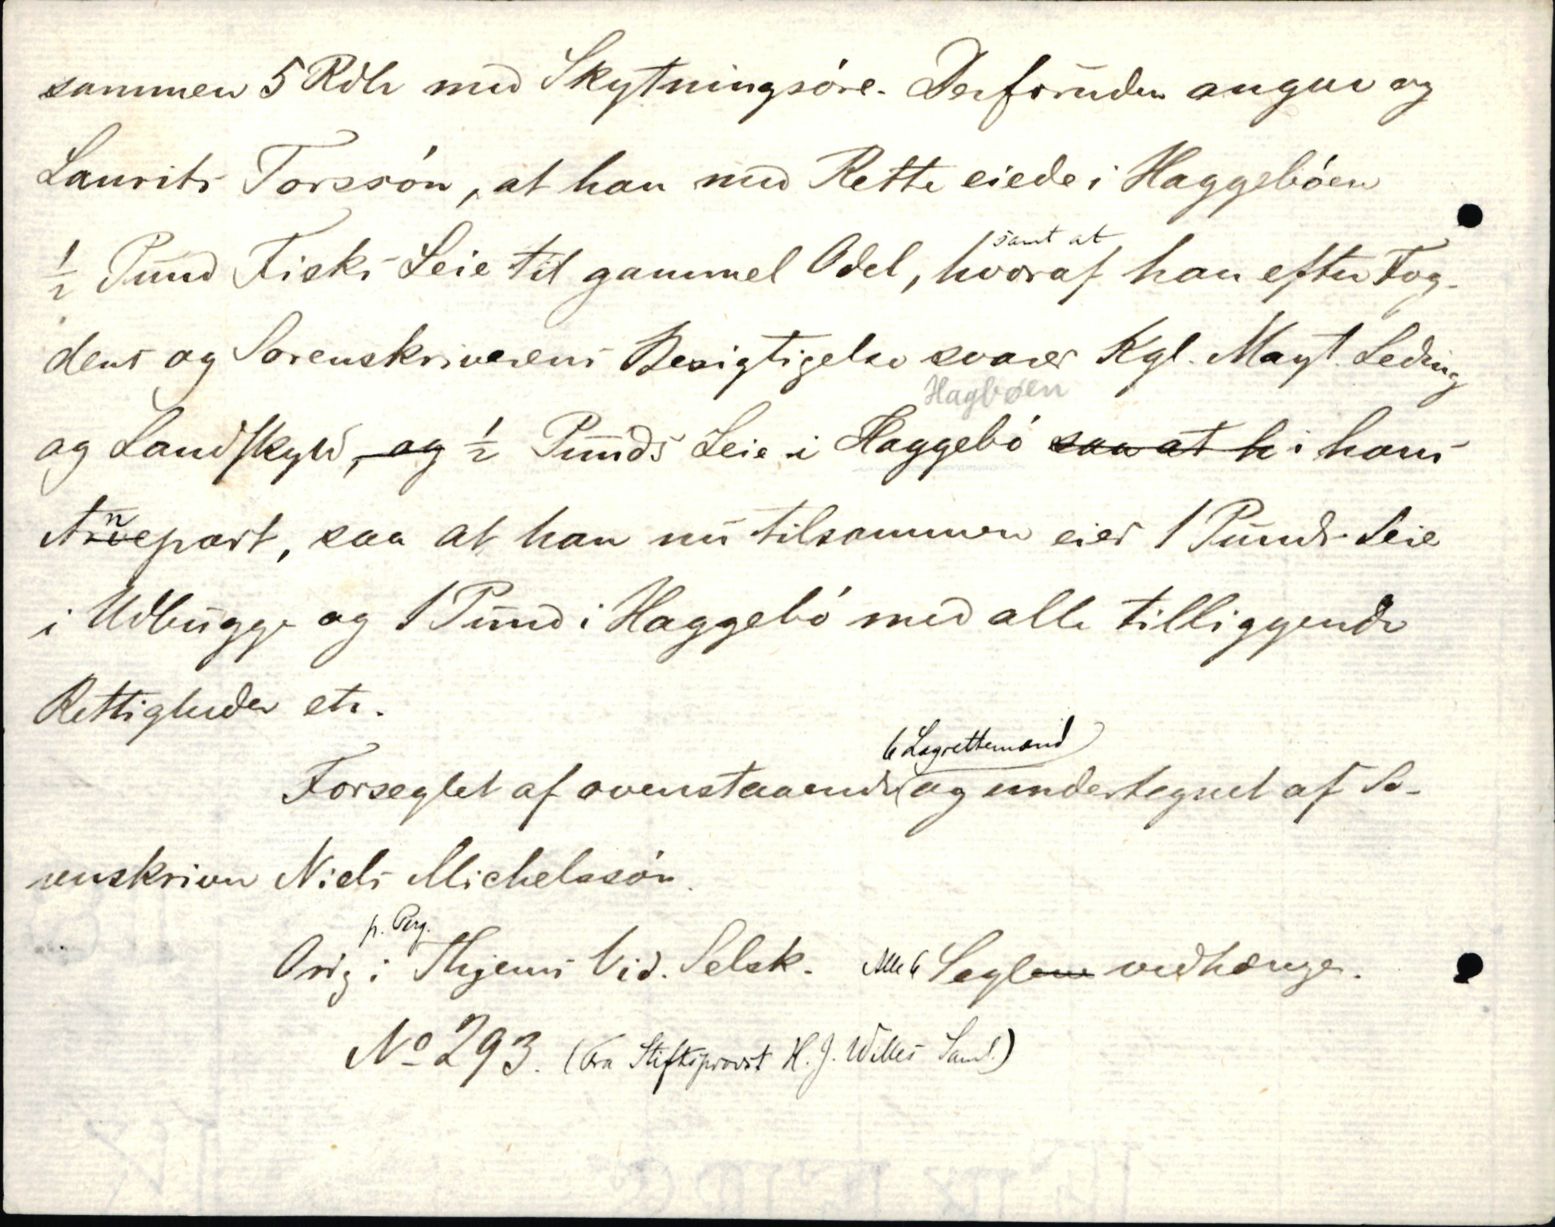 sammen 5 Rdlr med Skytningsöre. Desforuden angav og
Laurits Torssön, at han med Rette eiede i Haggeböen
samt at
½ Pund Fiske Leie til gammel Odel, hvoraf han efter Fog-
dens og Sorenskriverens Besigtigelse svarer Kgl. Mayt. Leding
Hagbøen
og Landskyld, og ½ Punds Leie i Haggebö saa at h i hans
Arvepart, saa at han nu tilsammen eier 1 Punds Leie
i Udbugge og 1 Pund i Haggebö med alle tilliggende
Rettigheder etc.
6 Lagrettemænd
Forseglet af ovenstaaende og undertegnet af So-
renskriver Niels Michelssön.
p. Perg.
Orig i Thjems Vid. Selsk. Alle 6 Seglene vedhænge.
No 293. (Fra Stiftsprovst H. J. Willes Saml.)